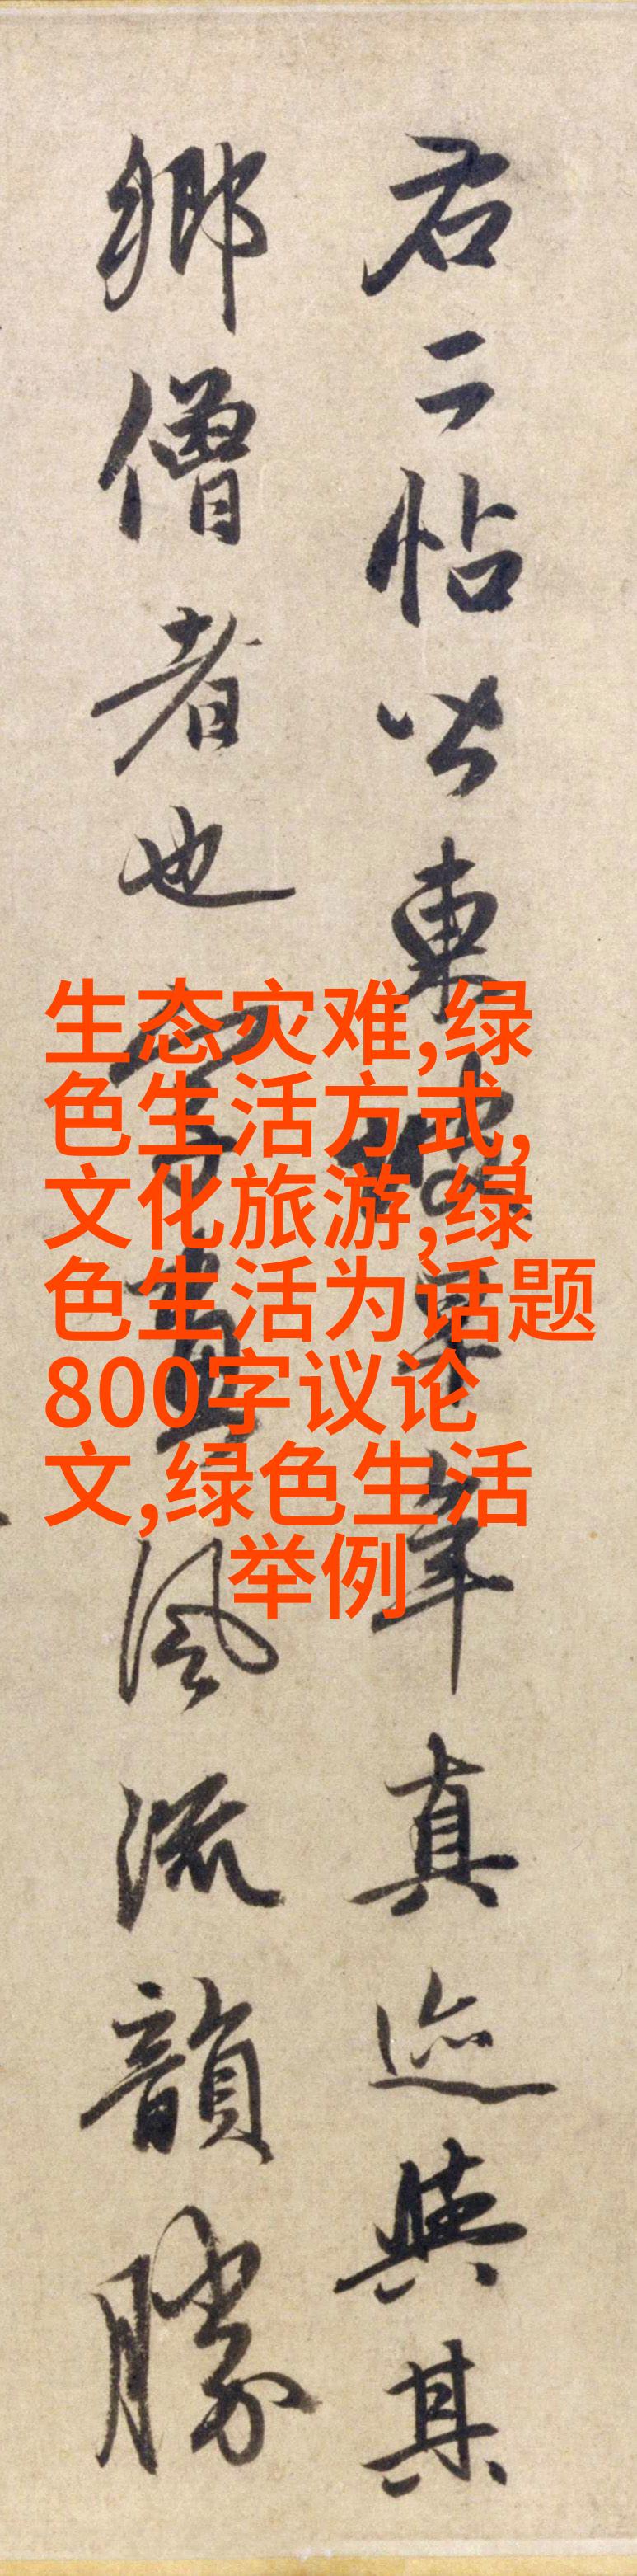 右二帖皆東坡早年真迹與其
鄉僧者也字畫風流韻勝
生态灾难,绿
色生活方式,
文化旅游,绿
色生活为话题
800字议论
文,绿色生活
举例